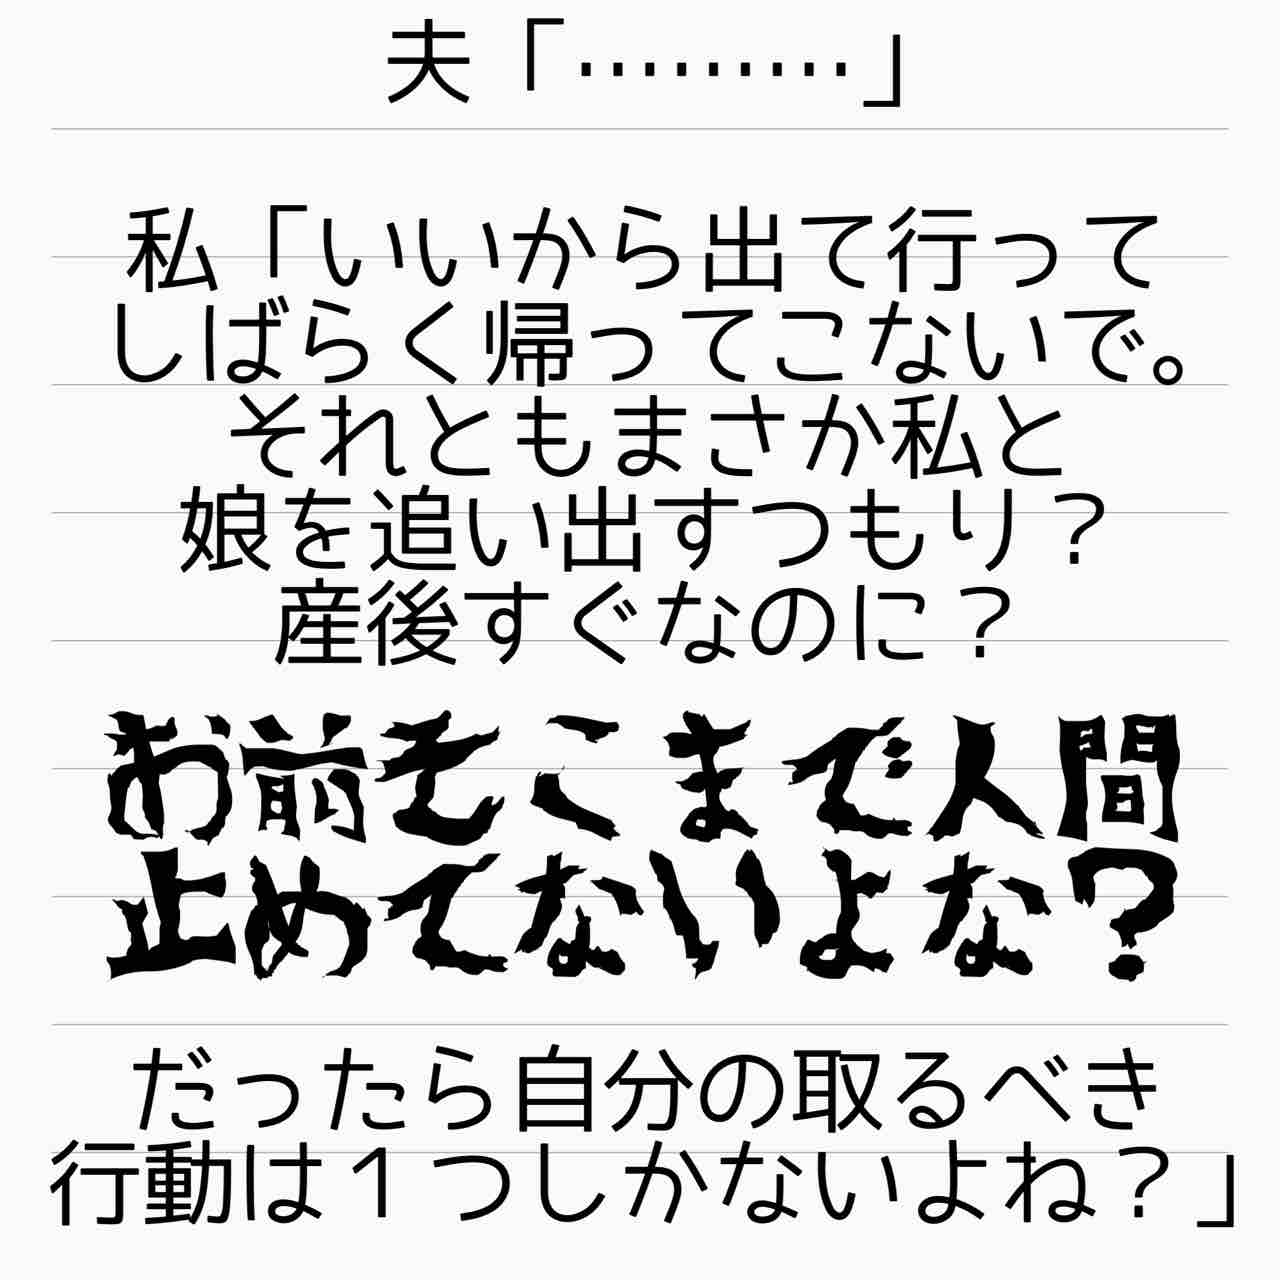 夫「………」
私「いいから出て行って
しばらく帰ってこないで。
それともまさか私と
娘を追い出すつもり？
産後すぐなのに？
お前そこまで人間
止めてないよな？
だったら自分の取るべき
行動は１つしかないよね？」